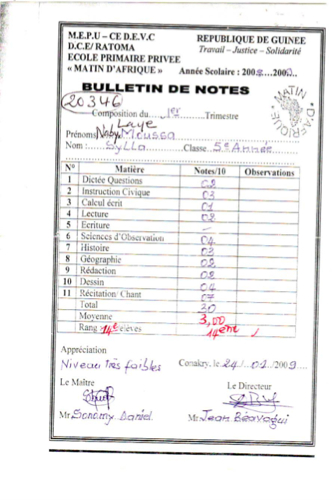 M.E.P.U – CE D.E.V.C
D.C.E/ RATOMA
ECOLE PRIMAIRE PRIVEE
« MATIN D'AFRIQUE »
REPUBLIQUE DE GUINEE
Travail – Justice – Solidarité
Année Scolaire : 200 ...200
BULLETIN DE NOTES
20346
Composition du 1er Trimestre
Laye
Prénoms Moussa
Nom : Sylla Classe 5e Année
MATIN D'AFRIQUE
N° Matière Notes/10 Observations
1 Dictée Questions 02
2 Instruction Civique 03
3 Calcul écrit 01
4 Lecture 02
5 Ecriture –
6 Sciences d'Observation 04
7 Histoire 03
8 Géographie
9 Rédaction
10 Dessin 04
11 Récitation/ Chant 07
Total 30
Moyenne 3,00
Rang 14e élèves 14em
Appréciation
Niveau très faibles
Conakry, le 24 01 2009
Le Maître
Le Directeur
Mr. Daniel
Mr Jean Béavogui